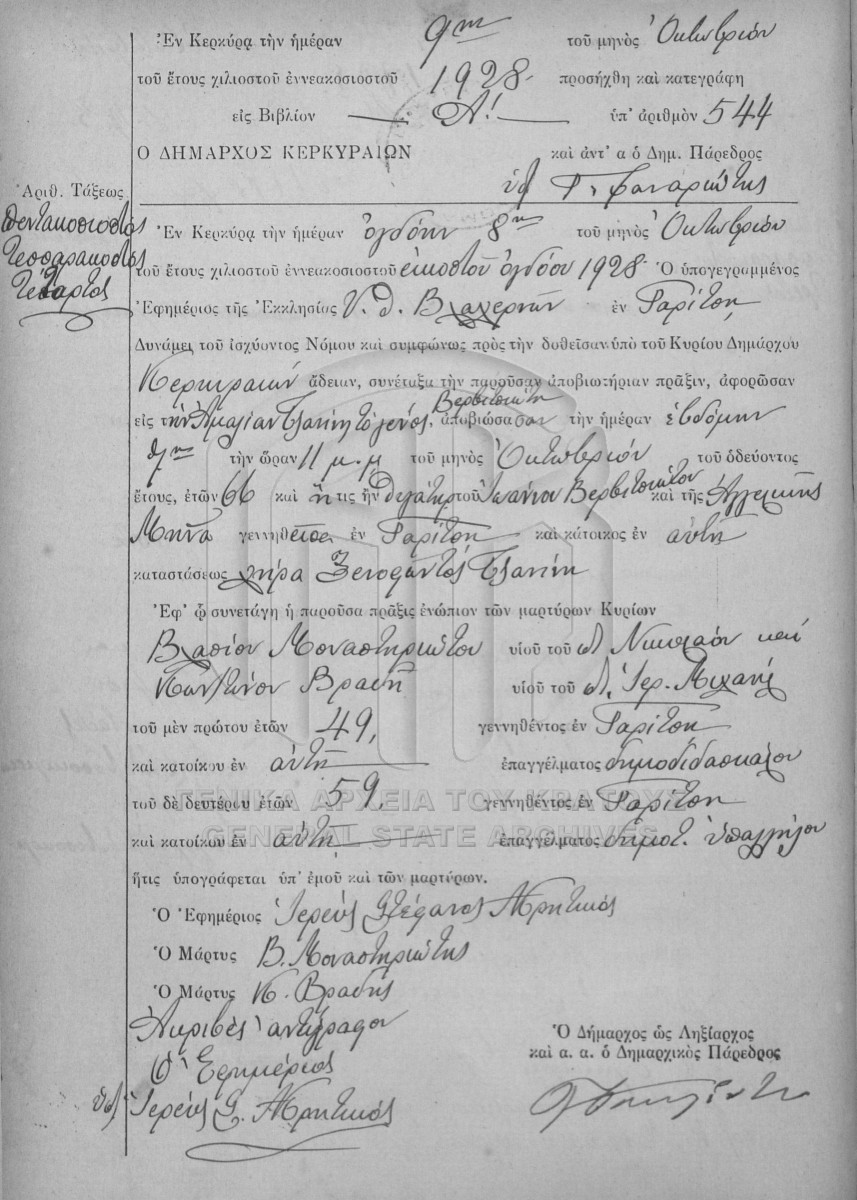 Ἐν Κερκύρᾳ τὴν ἡμέραν 9ην τοῦ μηνὸς Ὀκτωβρίου
τοῦ ἔτους χιλιοστοῦ ἐννεακοσιοστοῦ 1928 προσήχθη καὶ κατεγράφη
εἰς Βιβλίον Α! ὑπ' ἀριθμὸν 544
Ο ΔΗΜΑΡΧΟΣ ΚΕΡΚΥΡΑΙΩΝ καὶ ἀντ' α ὁ Δημ. Πάρεδρος
Γ. Φαναριώτης
Ἀριθ. Τάξεως
πεντακοσιοστὸς
τεσσαρακοστὸς
τέταρτος
Ἐν Κερκύρᾳ τὴν ἡμέραν ὀγδόην 8ην τοῦ μηνὸς Ὀκτωβρίου
τοῦ ἔτους χιλιοστοῦ ἐννεακοσιοστοῦ εἰκοστοῦ ὀγδόου 1928 Ὁ ὑπογεγραμμένος
Ἐφημέριος τῆς Ἐκκλησίας Υ. Θ. Βλαχερνῶν ἐν Γαρίτσῃ
Δυνάμει τοῦ ἰσχύοντος Νόμου καὶ συμφώνως πρὸς τὴν δοθεῖσαν ὑπὸ τοῦ Κυρίου Δημάρχου
Κερκυραίων ἄδειαν, συνέταξα τὴν παροῦσαν ἀποβιωτήριαν πρᾶξιν, ἀφορῶσαν
εἰς τὴν Ἀμαλίαν Τζανίνη τὸ γένος Βερβιτσιώτη, ἀποβιώσασαν τὴν ἡμέραν ἑβδόμην
7ην τὴν ὥραν 11 μ.μ τοῦ μηνὸς Ὀκτωβρίου τοῦ ὁδεύοντος
ἔτους, ἐτῶν 66 καὶ ἥτις ἦν θυγάτηρ τοῦ Ἰωάννου Βερβιτσιώτου καὶ τῆς Ἀγγελικῆς
Μηνᾶ γεννηθεῖσα ἐν Γαρίτσῃ καὶ κάτοικος ἐν αὐτῇ
καταστάσεως χήρα Ξενοφῶντος Τζανίνη
Ἐφ' ᾧ συνετάγη ἡ παροῦσα πρᾶξις ἐνώπιον τῶν μαρτύρων Κυρίων
Βλασίου Μοναστηριώτου υἱοῦ τοῦ Νικολάου καὶ
Κων/τίνου Βραδῆ υἱοῦ τοῦ Ἱερ. Μιχαὴλ
τοῦ μὲν πρώτου ἐτῶν 49, γεννηθέντος ἐν Γαρίτσῃ
καὶ κατοίκου ἐν αὐτῇ ἐπαγγέλματος δημοδιδασκάλου
τοῦ δὲ δευτέρου ἐτῶν 59, γεννηθέντος ἐν Γαρίτσῃ
ΓΕΝΙΚΑ ΑΡΧΕΙΑ ΤΟΥ ΚΡΑΤΟΥΣ
GENERAL STATE ARCHIVES
καὶ κατοίκου ἐν αὐτῇ ἐπαγγέλματος δημοτ. ὑπαλλήλου
ἥτις ὑπογράφεται ὑπ' ἐμοῦ καὶ τῶν μαρτύρων.
Ὁ Ἐφημέριος Ἱερεὺς Στέφανος Κρητικός
Ὁ Μάρτυς Β. Μοναστηριώτης
Ὁ Μάρτυς Κ. Βραδῆς
Ἀκριβὲς ἀντίγραφον
Ὁ Ἐφημέριος
Ἱερεὺς Σ. Κρητικός
Ὁ Δήμαρχος ὡς Ληξίαρχος
καὶ α. α. ὁ Δημαρχικὸς Πάρεδρος